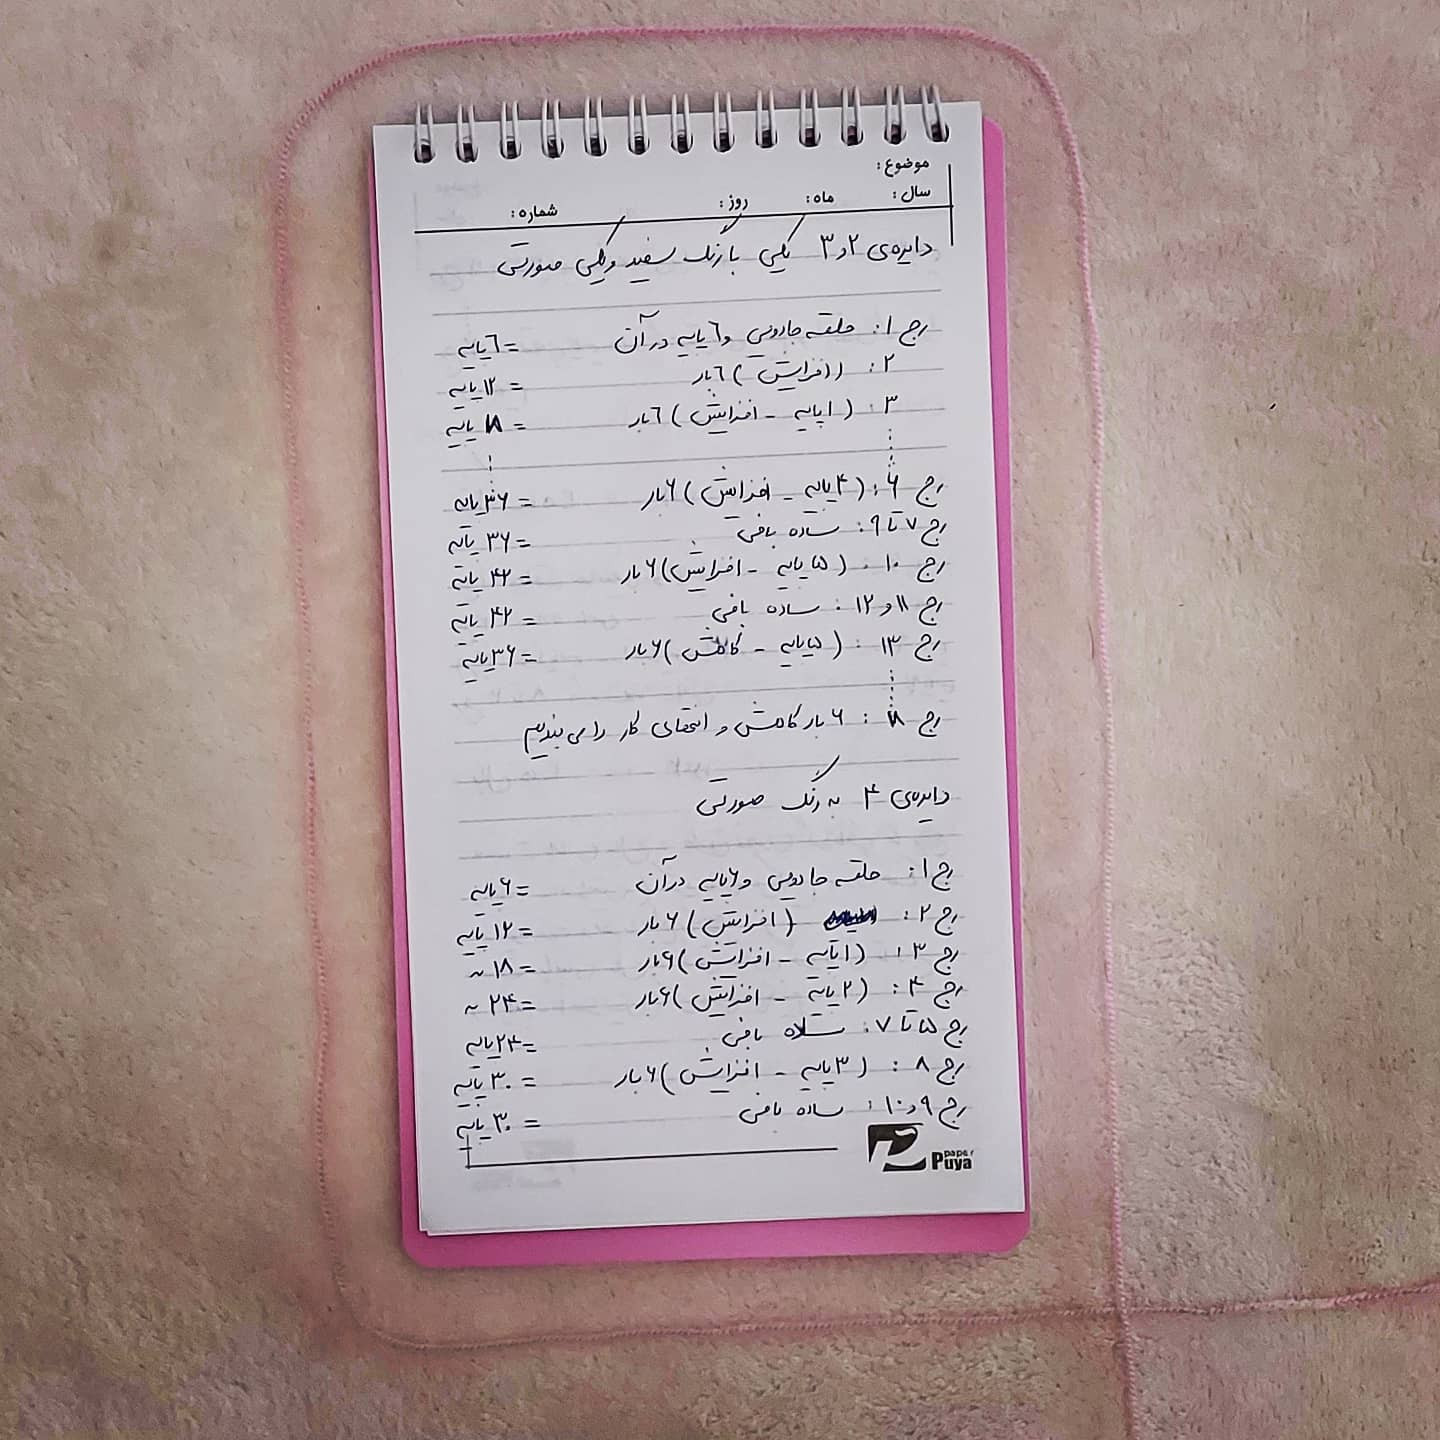 موضوع:
سال: ماه: روز: شماره:
دایره‌ی ۲ و ۳ یکی با رنگ سفید و یکی صورتی
رج ۱: حلقه جادویی و ۶ پایه در آن = ۶ پایه
۲: (افزایش) ۶ بار = ۱۲ پایه
۳: (۱ پایه - افزایش) ۶ بار = ۱۸ پایه
رج ۶: (۴ پایه - افزایش) ۶ بار = ۳۶ پایه
رج ۷ تا ۹: ساده بافی = ۳۶ پایه
رج ۱۰: (۵ پایه - افزایش) ۶ بار = ۴۲ پایه
رج ۱۱ و ۱۲: ساده بافی = ۴۲ پایه
رج ۱۳: (۵ پایه - کاهش) ۶ بار = ۳۶ پایه
رج ۱۸: ۶ بار کاهش و انتهای کار را می بندیم
دایره‌ی ۴ به رنگ صورتی
رج ۱: حلقه جادویی و ۶ پایه در آن = ۶ پایه
رج ۲: (افزایش) ۶ بار = ۱۲ پایه
رج ۳: (۱ پایه - افزایش) ۶ بار = ۱۸ ~
رج ۴: (۲ پایه - افزایش) ۶ بار = ۲۴ ~
رج ۵ تا ۷: ساده بافی = ۲۴ پایه
رج ۸: (۳ پایه - افزایش) ۶ بار = ۳۰ پایه
رج ۹ و ۱۰: ساده بافی = ۳۰ پایه
paper
Puya